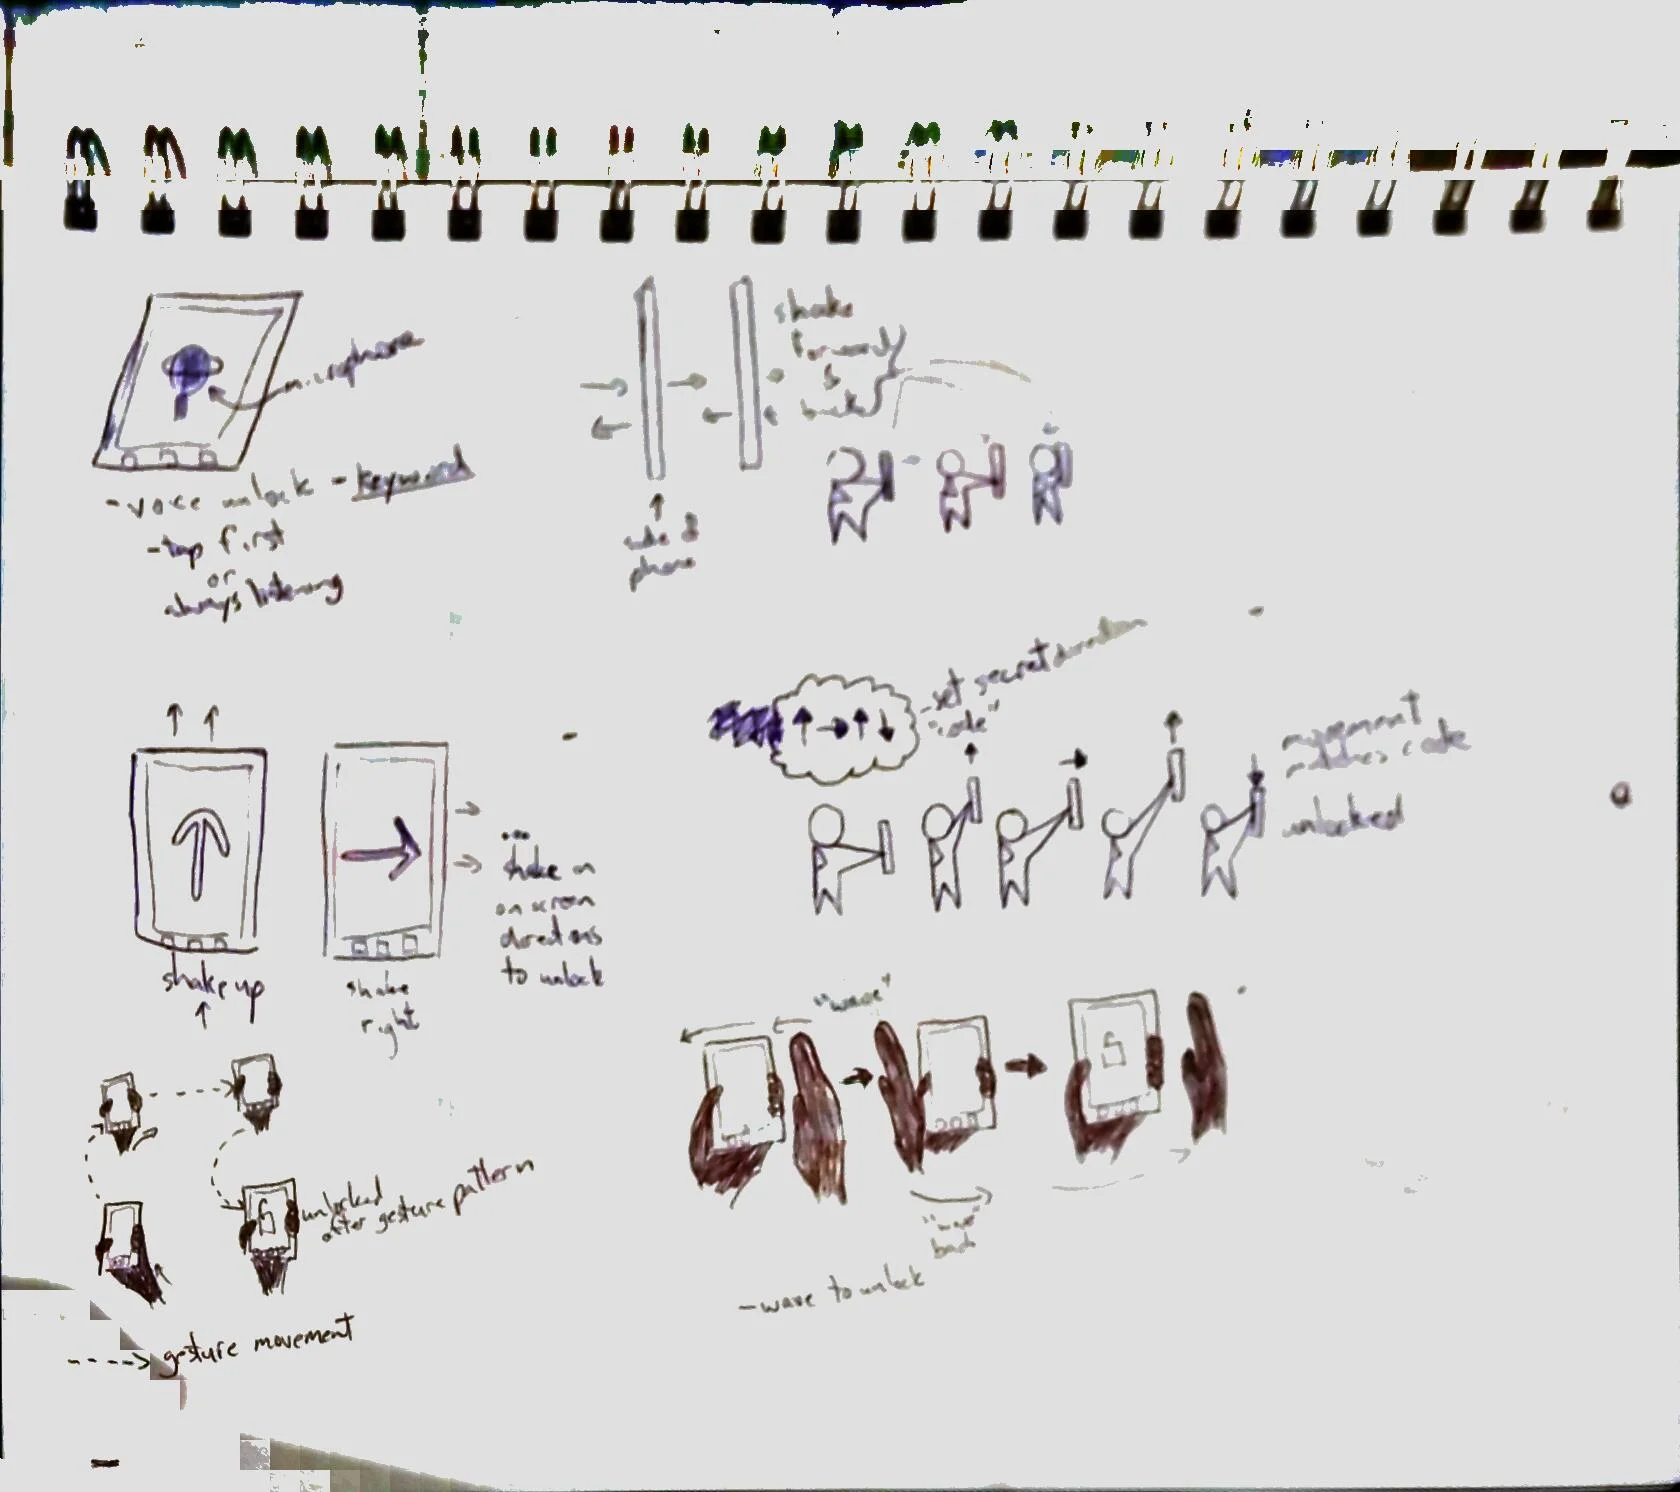 microphone
- voice unlock - keyword
- tap first
or
always listening
shake
forward
&
back
side of
phone
- set secret direction
"code"
movement
matches code
unlocked
shake up
shake
right
...
shake in
on screen
directions
to unlock
"wave"
"wave"
back
- wave to unlock
unlocked
after gesture pattern
gesture movement